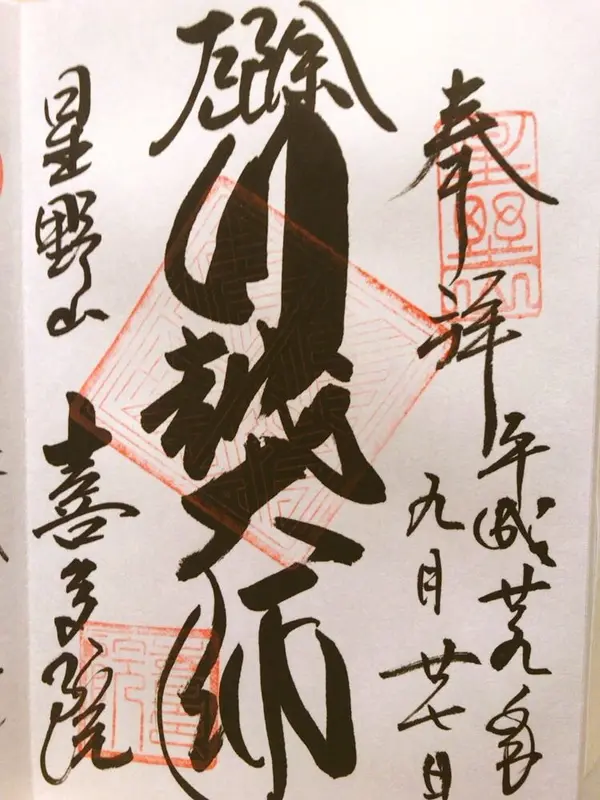 奉拝
平成廿九年
九月廿七日
厄除
川越大師
星野山
喜多院
星野山